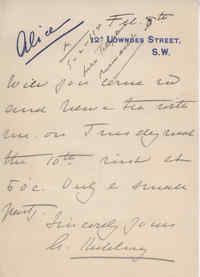 Alice
Feb. 8th
12, LOWNDES STREET,
S.W.
Will you come in
and have tea with
me on Tuesday next
the 10th inst at
5 o'c. Only a small
party.
Sincerely yours